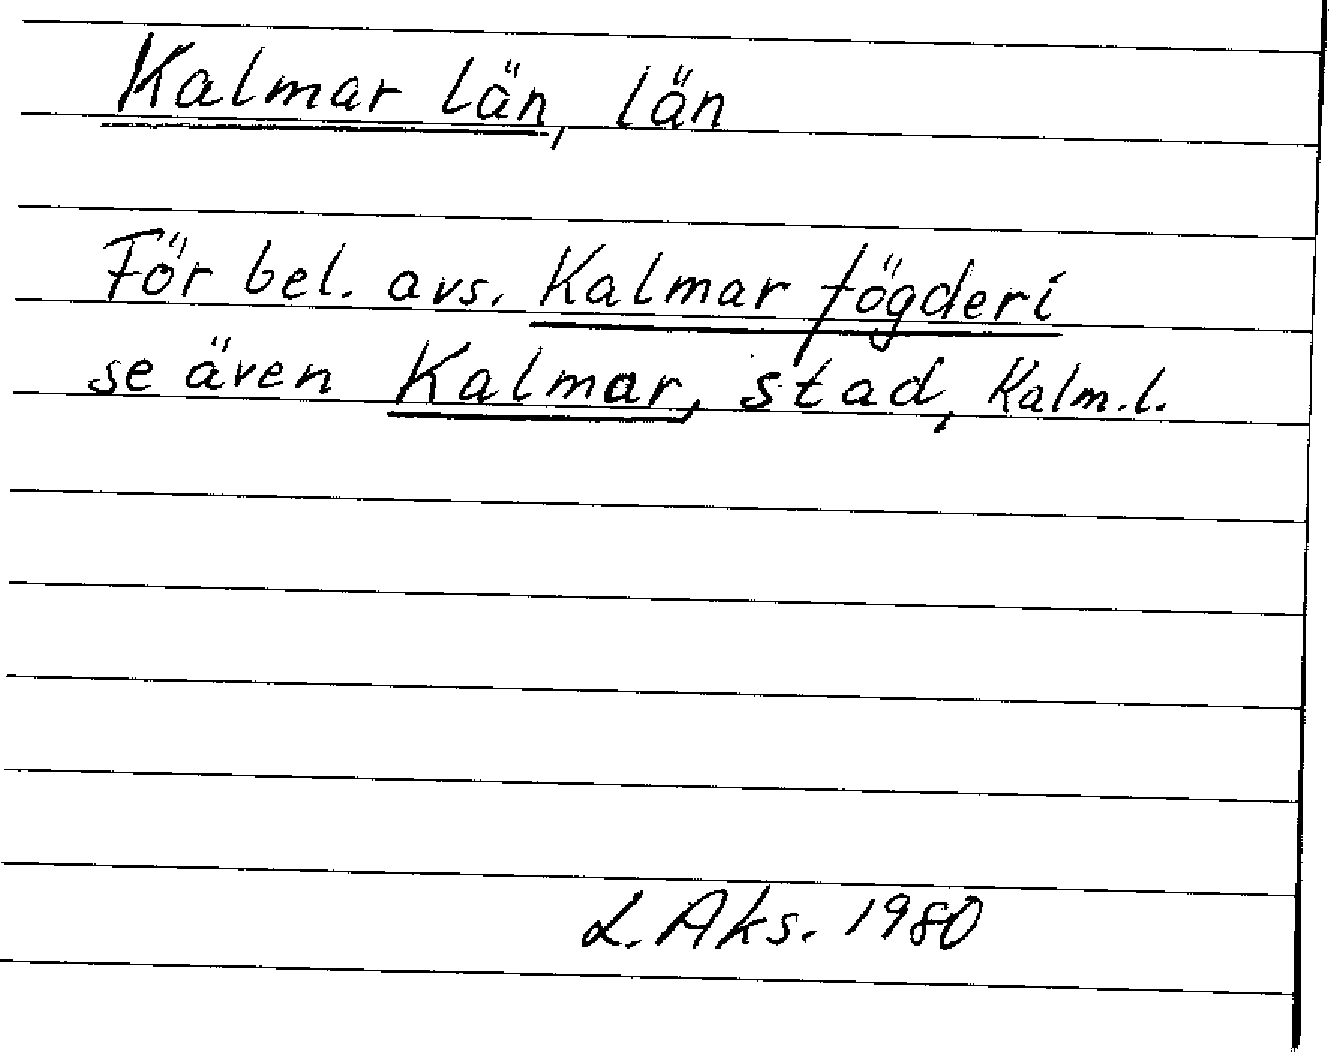 Kalmar län, län
För bel. avs. Kalmar fögderi
se även Kalmar, stad, Kalm.l.
L. Aks. 1980